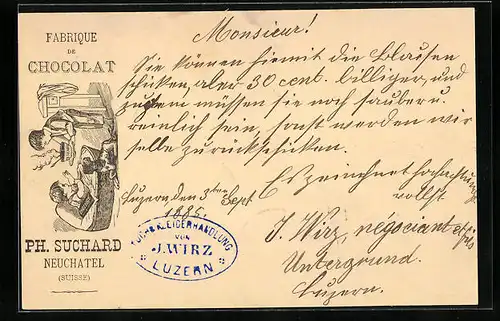 FABRIQUE
DE
CHOCOLAT
PH. SUCHARD
NEUCHATEL
(SUISSE)
Monsieur!
Sie können hiemit die Blousen
schicken, aber 30 cent. billiger, und
zudem müssen sie noch sauber u.
reinlich sein, sonst werden wir
selbe zurückschicken.
Luzern, den 3ten Sept
1885.
Es zeichnet hochachtungs
vollst
J. Wirz, négociant et fils
Untergrund.
Luzern.
TUCH- & KLEIDERHANDLUNG
VON
J. WIRZ
LUZERN